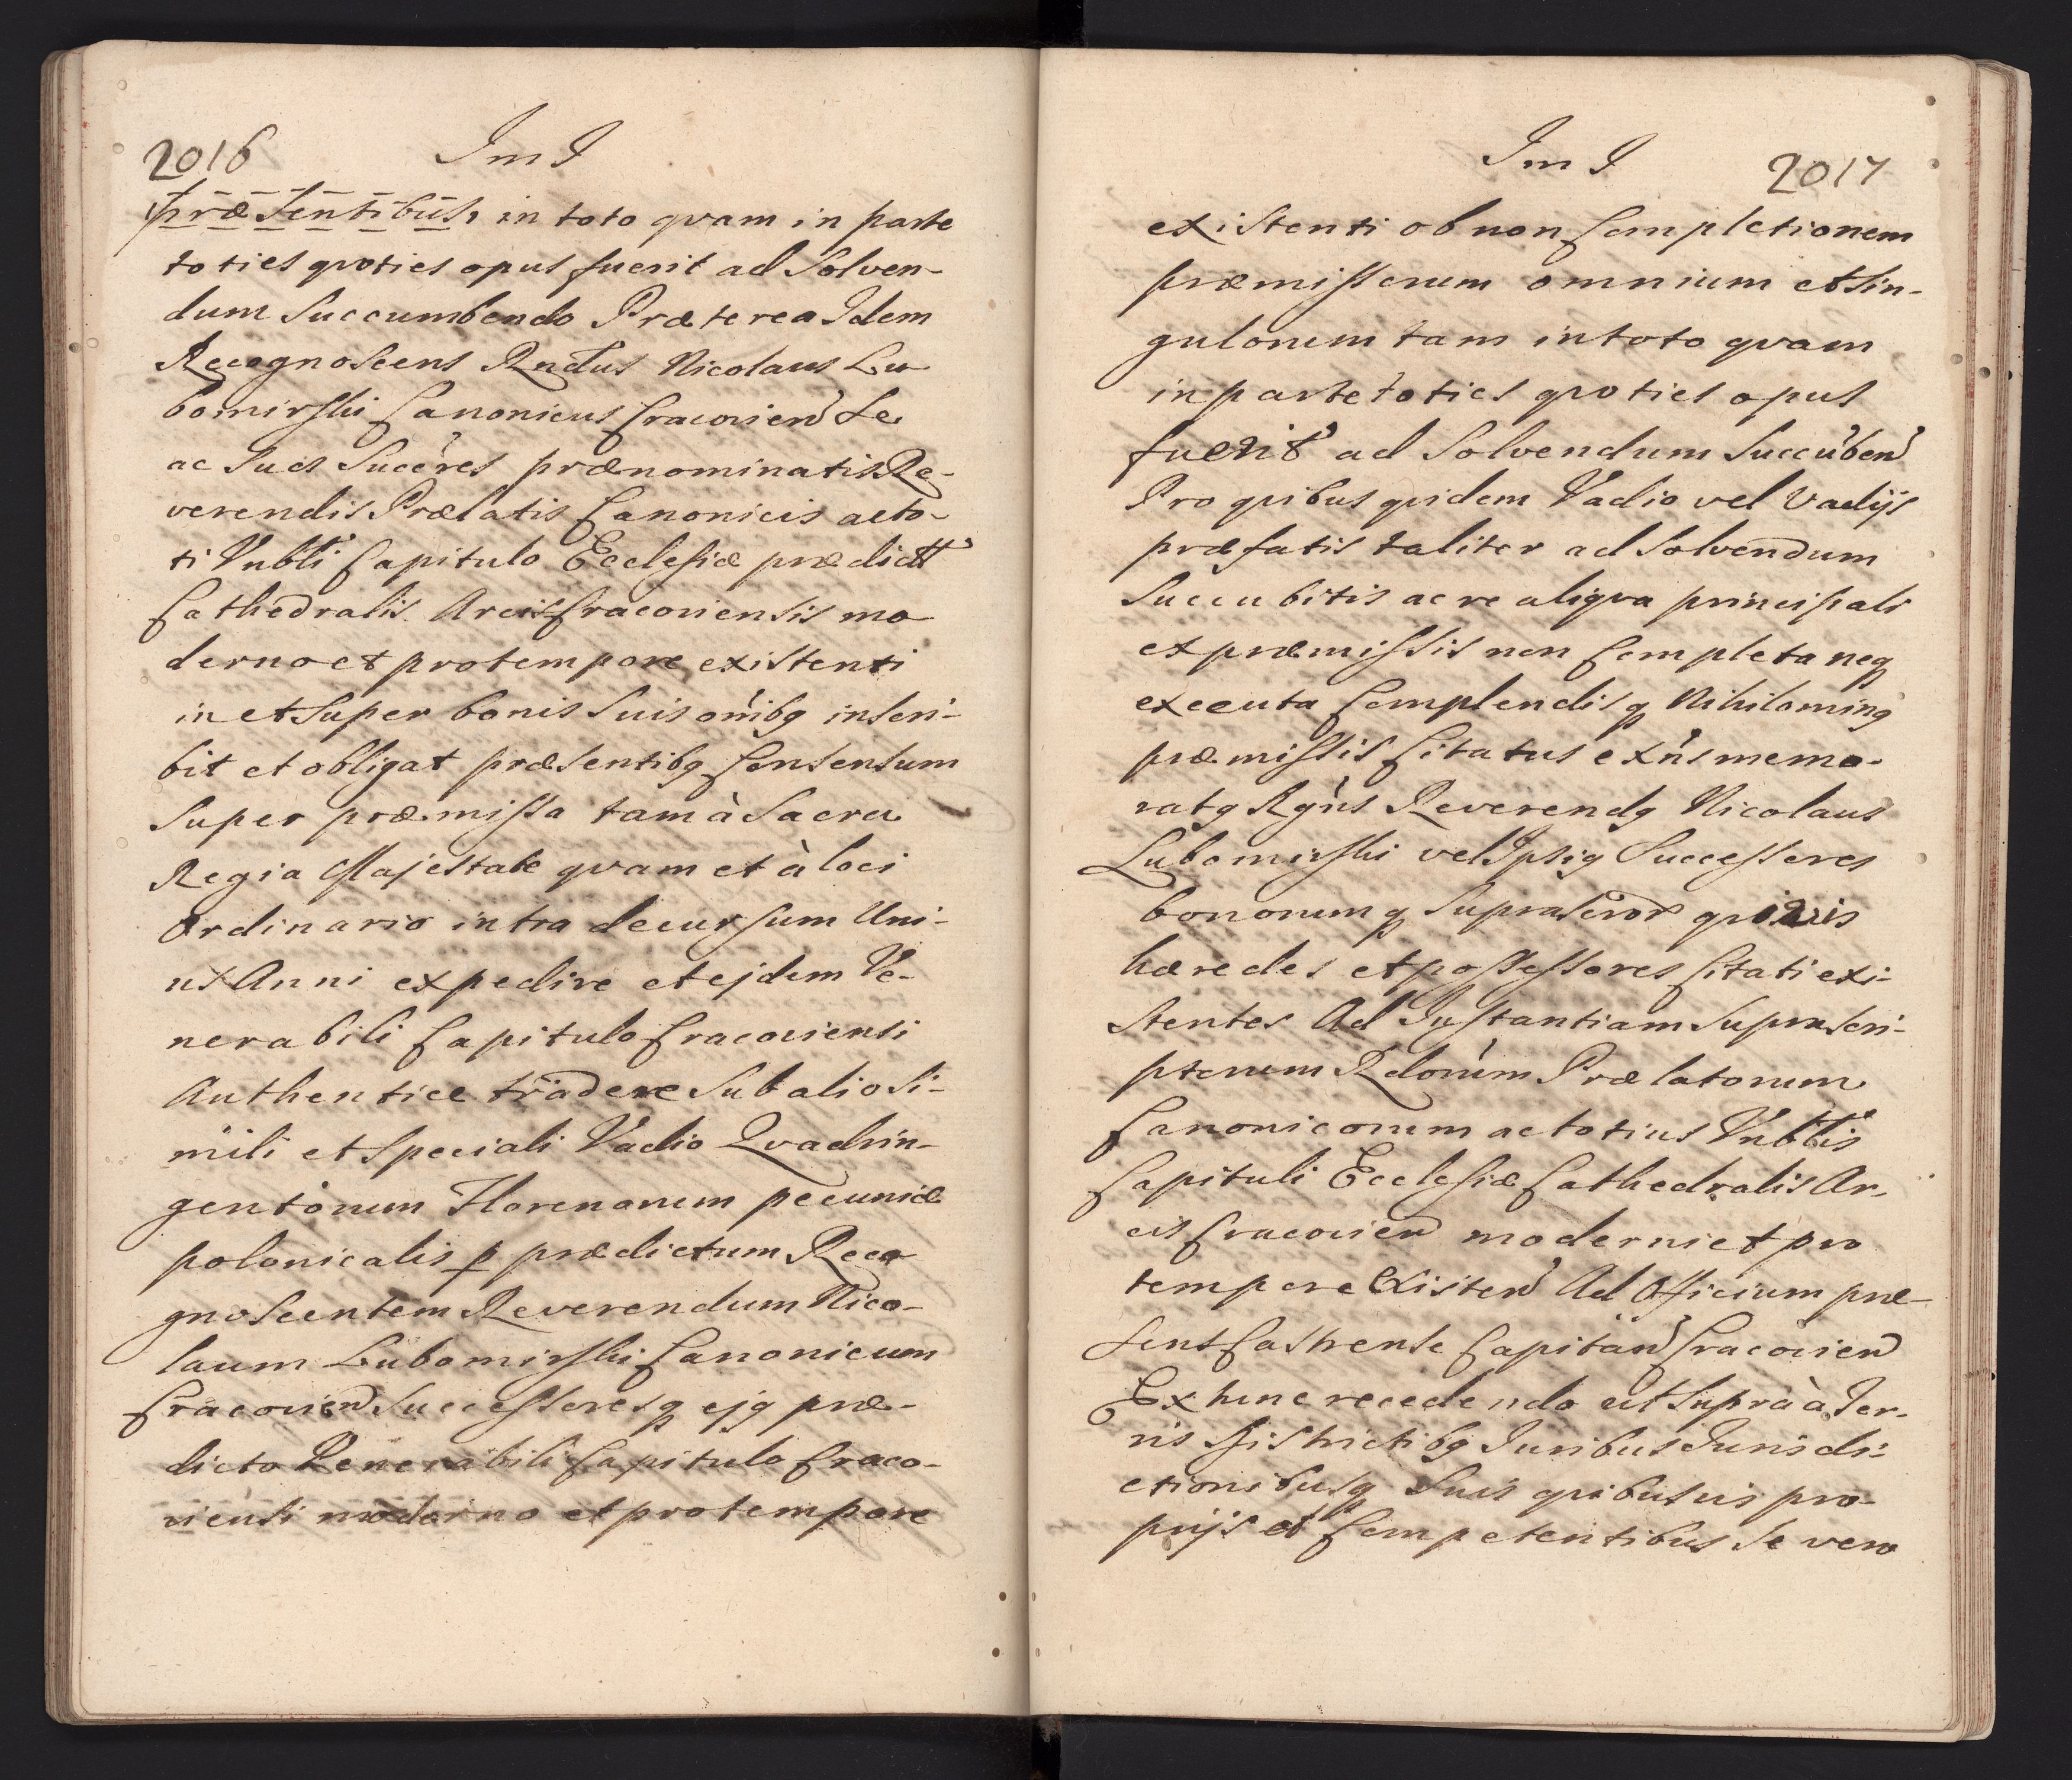 2016
Im I
præsentibus, in toto qvam in parte
toties qvoties opus fuerit ad Solven-
dum Succumbendo Præterea Idem
Recognoscens Rndus Nicolaus Lu
bomirski Canonicus Cracovien Se
ac Suos Succeres prænominatis Re-
verendis Prælatis Canonicis acto-
ti Vnbli Capitulo Ecclesiæ prædictt
Cathedralis Arcis Cracoviensis mo
derno et pro tempore existenti
in et Super bonis Suis oñibq inscri-
bit et obligat præsentibq Consensum
Super præmissa tam à Sacra
Regia Majestate qvam et à loci
Ordinario intra decursum Uni-
us Anni expedire et ejdem Ve-
nerabili Capitulo Cracoviensi
Authentice tradere Sub alio Si-
mili et Speciali Vadio Qvadrin-
gentorum Florenorum pecuniæ
polonicalis p prædictum Reco
gnoscentem Reverendum Nico-
laum Lubomirski Canonicum
Cracovien Successoresq ejq præ-
dicto Venerabili Capitulo Craco-
viensi moderno et pro tempore
Im I
2017
existenti ob non Completionem
præmissorum omnium et Sin-
gulorum tam in toto qvam
in parte toties qvoties opus
fuerit ad Solvendum Succuben
Pro qvibus qvidem Vadio vel Vadijs
præfatis taliter ad Solvendum
Succubitis ac re aliqva principali
et præmissis non Completa neq
executa Complendisq Nihilominq
præmissis Citatus exñs memo-
ratq Rgñs Reverendq Nicolaus
Lubomirski vel Ipsiq Successores
bonorumq Suprascror qvivis
hæredes et possessores Citati exi-
stentes Ad Instantiam Suprascri-
ptorum Rdorum Prælatorum
Canonicorum ac totius Vnblis
Capituli Ecclesiæ Cathedralis Ar-
cis Cracovien moderni et pro
tempore Existen Ad Officium præ-
sens Castrense Capitan Cracovien
Ex hunc recedendo ut Supra à Ter-
ris Districtibq Iuribus Iurisdi-
ctionibusq Suis qvibusvis pro-
prijs et Competentibus Se vero